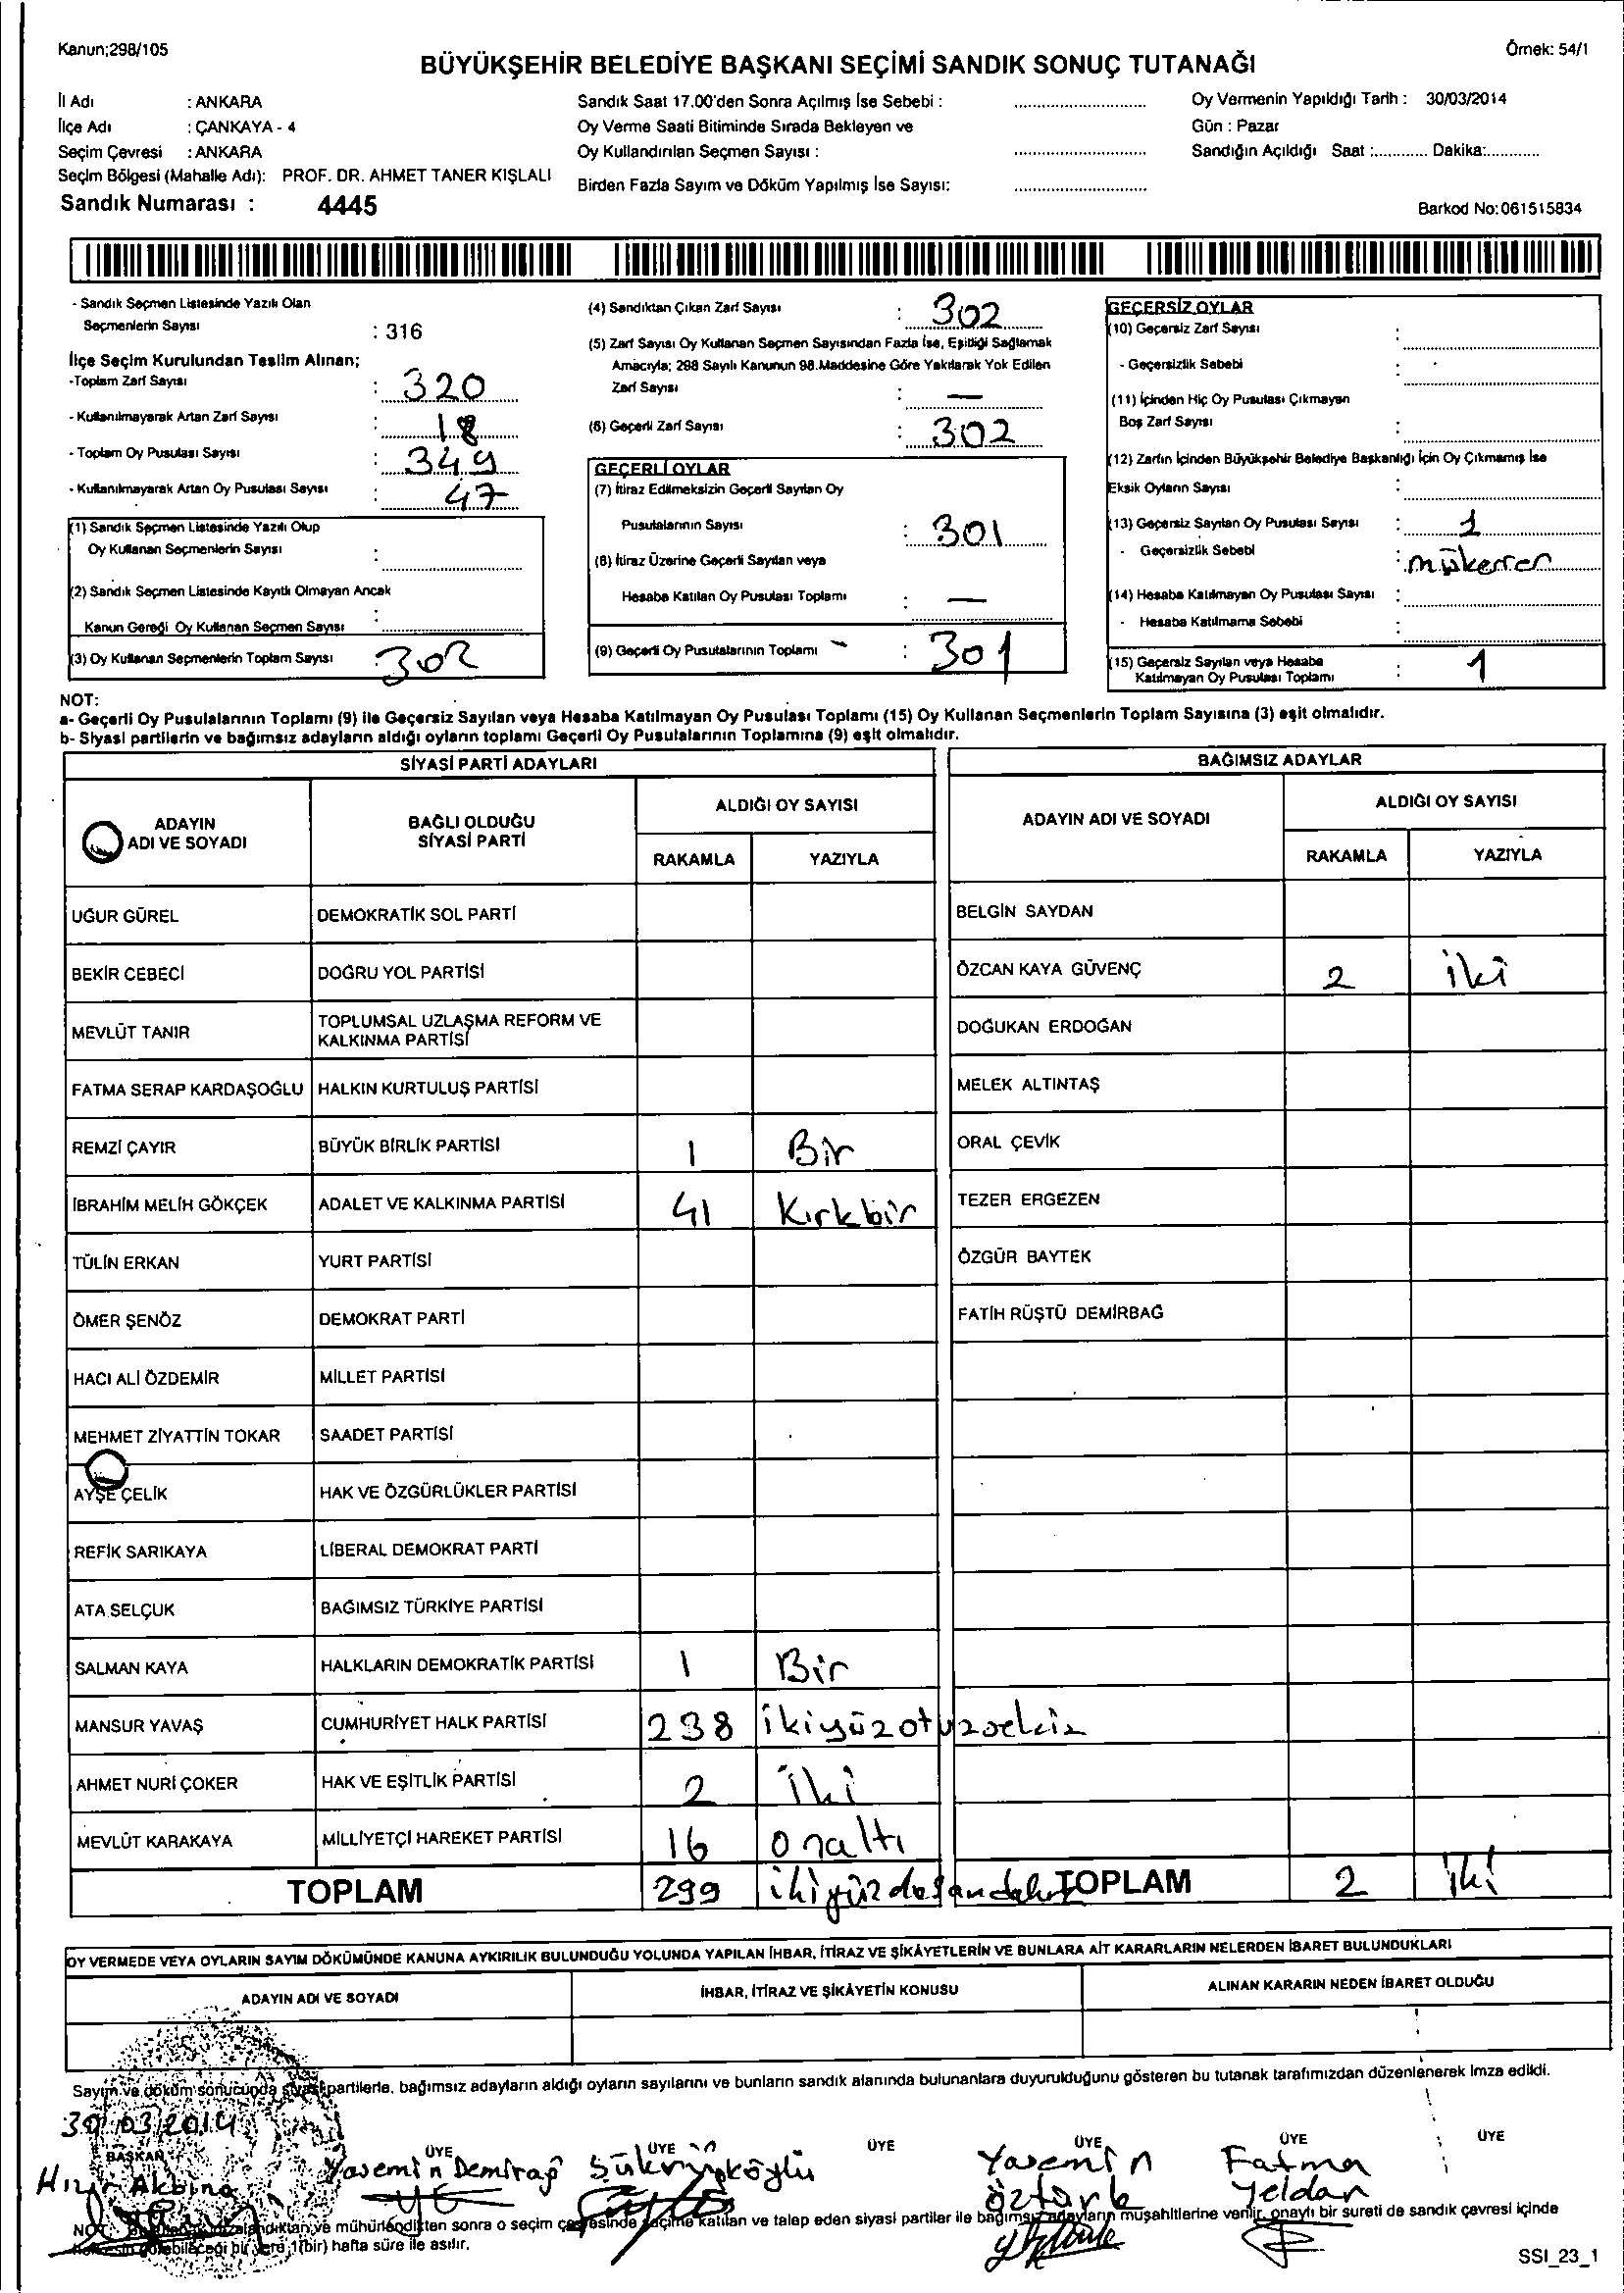 Kanun;298/105
Örnek: 54/1
BÜYÜKŞEHİR BELEDİYE BAŞKANI SEÇİMİ SANDIK SONUÇ TUTANAĞI
İl Adı : ANKARA
İlçe Adı : ÇANKAYA - 4
Seçim Çevresi : ANKARA
Seçim Bölgesi (Mahalle Adı): PROF. DR. AHMET TANER KIŞLALI
Sandık Numarası : 4445
Sandık Saat 17.00'den Sonra Açılmış İse Sebebi :
Oy Verme Saati Bitiminde Sırada Bekleyen ve
Oy Kullandırılan Seçmen Sayısı :
Birden Fazla Sayım ve Döküm Yapılmış İse Sayısı:
Oy Vermenin Yapıldığı Tarih : 30/03/2014
Gün : Pazar
Sandığın Açıldığı Saat :............ Dakika:............
Barkod No:061515834
- Sandık Seçmen Listesinde Yazılı Olan
Seçmenlerin Sayısı : 316
İlçe Seçim Kurulundan Teslim Alınan;
-Toplam Zarf Sayısı : 320
- Kullanılmayarak Artan Zarf Sayısı : 18
- Toplam Oy Pusulası Sayısı : 349
- Kullanılmayarak Artan Oy Pusulası Sayısı : 47
(1) Sandık Seçmen Listesinde Yazılı Olup
Oy Kullanan Seçmenlerin Sayısı :
(2) Sandık Seçmen Listesinde Kayıtlı Olmayan Ancak
Kanun Gereği Oy Kullanan Seçmen Sayısı :
(3) Oy Kullanan Seçmenlerin Toplam Sayısı : 302
(4) Sandıktan Çıkan Zarf Sayısı : 302
(5) Zarf Sayısı Oy Kullanan Seçmen Sayısından Fazla İse, Eşitliği Sağlamak
Amacıyla; 298 Sayılı Kanunun 98.Maddesine Göre Yakılarak Yok Edilen
Zarf Sayısı : —
(6) Geçerli Zarf Sayısı : 302
GEÇERLİ OYLAR
(7) İtiraz Edilmeksizin Geçerli Sayılan Oy
Pusulalarının Sayısı : 301
(8) İtiraz Üzerine Geçerli Sayılan veya
Hesaba Katılan Oy Pusulası Toplamı : —
(9) Geçerli Oy Pusulalarının Toplamı : 301
GEÇERSİZ OYLAR
(10) Geçersiz Zarf Sayısı :
- Geçersizlik Sebebi :
(11) İçinden Hiç Oy Pusulası Çıkmayan
Boş Zarf Sayısı :
(12) Zarfın İçinden Büyükşehir Belediye Başkanlığı İçin Oy Çıkmamış İse
Eksik Oyların Sayısı :
(13) Geçersiz Sayılan Oy Pusulası Sayısı : 1
- Geçersizlik Sebebi : mükerrer
(14) Hesaba Katılmayan Oy Pusulası Sayısı :
- Hesaba Katılmama Sebebi :
(15) Geçersiz Sayılan veya Hesaba
Katılmayan Oy Pusulası Toplamı : 1
NOT:
a- Geçerli Oy Pusulalarının Toplamı (9) ile Geçersiz Sayılan veya Hesaba Katılmayan Oy Pusulası Toplamı (15) Oy Kullanan Seçmenlerin Toplam Sayısına (3) eşit olmalıdır.
b- Siyasi partilerin ve bağımsız adayların aldığı oyların toplamı Geçerli Oy Pusulalarının Toplamına (9) eşit olmalıdır.
SİYASİ PARTİ ADAYLARI
ADAYIN
ADI VE SOYADI
BAĞLI OLDUĞU
SİYASİ PARTİ
ALDIĞI OY SAYISI
RAKAMLA YAZIYLA
UĞUR GÜREL DEMOKRATİK SOL PARTİ
BEKİR CEBECİ DOĞRU YOL PARTİSİ
MEVLÜT TANIR TOPLUMSAL UZLAŞMA REFORM VE
KALKINMA PARTİSİ
FATMA SERAP KARDAŞOĞLU HALKIN KURTULUŞ PARTİSİ
REMZİ ÇAYIR BÜYÜK BİRLİK PARTİSİ 1 Bir
İBRAHİM MELİH GÖKÇEK ADALET VE KALKINMA PARTİSİ 41 Kırkbir
TÜLİN ERKAN YURT PARTİSİ
ÖMER ŞENÖZ DEMOKRAT PARTİ
HACI ALİ ÖZDEMİR MİLLET PARTİSİ
MEHMET ZİYATTİN TOKAR SAADET PARTİSİ
AYŞE ÇELİK HAK VE ÖZGÜRLÜKLER PARTİSİ
REFİK SARIKAYA LİBERAL DEMOKRAT PARTİ
ATA SELÇUK BAĞIMSIZ TÜRKİYE PARTİSİ
SALMAN KAYA HALKLARIN DEMOKRATİK PARTİSİ 1 Bir
MANSUR YAVAŞ CUMHURİYET HALK PARTİSİ 238 ikiyüzotuzsekiz
AHMET NURİ ÇOKER HAK VE EŞİTLİK PARTİSİ 2 iki
MEVLÜT KARAKAYA MİLLİYETÇİ HAREKET PARTİSİ 16 onaltı
TOPLAM 299
BAĞIMSIZ ADAYLAR
ADAYIN ADI VE SOYADI
ALDIĞI OY SAYISI
RAKAMLA YAZIYLA
BELGİN SAYDAN
ÖZCAN KAYA GÜVENÇ 2 iki
DOĞUKAN ERDOĞAN
MELEK ALTINTAŞ
ORAL ÇEVİK
TEZER ERGEZEN
ÖZGÜR BAYTEK
FATİH RÜŞTÜ DEMİRBAĞ
TOPLAM 2 iki
OY VERMEDE VEYA OYLARIN SAYIM DÖKÜMÜNDE KANUNA AYKIRILIK BULUNDUĞU YOLUNDA YAPILAN İHBAR, İTİRAZ VE ŞİKÂYETLERİN VE BUNLARA AİT KARARLARIN NELERDEN İBARET BULUNDUKLARI
ADAYIN ADI VE SOYADI
İHBAR, İTİRAZ VE ŞİKÂYETİN KONUSU
ALINAN KARARIN NEDEN İBARET OLDUĞU
Sayım ve döküm sonucunda siyasi partilerle, bağımsız adayların aldığı oyların sayılarını ve bunların sandık alanında bulunanlara duyurulduğunu gösteren bu tutanak tarafımızdan düzenlenerek imza edildi.
30/03/2014
BAŞKAN ÜYE ÜYE ÜYE ÜYE ÜYE ÜYE
Yasemin Demirağ
Yasemin
Öztürk
Fatma
Yeldan
mühürlendikten sonra o seçim çevresinde seçime katılan ve talep eden siyasi partiler ile bağımsız adayların müşahitlerine verilir, onaylı bir sureti de sandık çevresi içinde
bir yere 1(bir) hafta süre ile asılır.
SSI_23_1